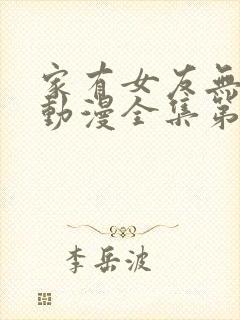 家有女友無
動漫全集第
李岳波